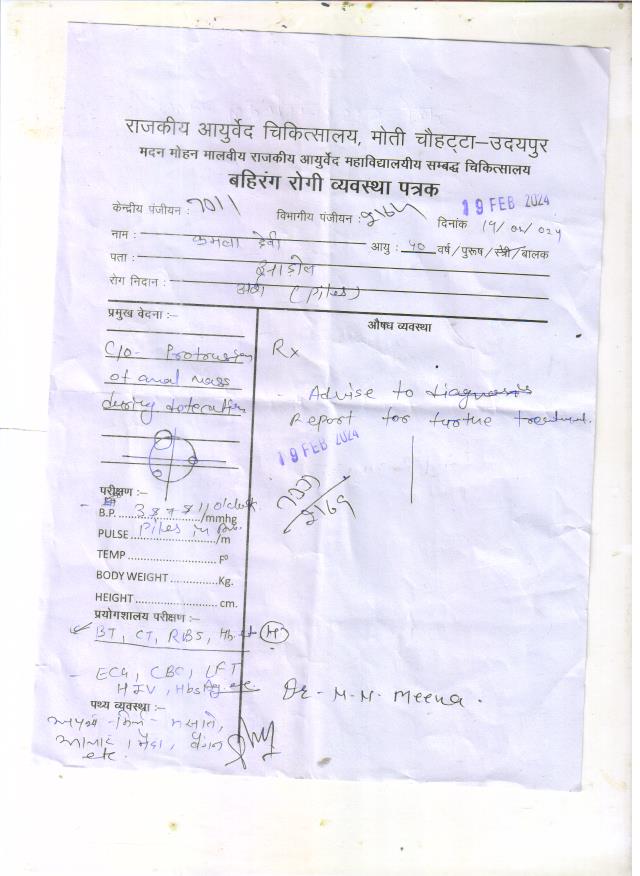 राजकीय आयुर्वेद चिकित्सालय, मोती चौहट्टा–उदयपुर
मदन मोहन मालवीय राजकीय आयुर्वेद महाविद्यालयीय सम्बद्ध चिकित्सालय
बहिरंग रोगी व्यवस्था पत्रक
19 FEB 2024
केन्द्रीय पंजीयन : 7011 विभागीय पंजीयन : दिनांक 19/02/024
नाम : कमला देवी आयु : 40 वर्ष/पुरूष/स्त्री/बालक
पता :
रोग निदान : अर्श (Piles)
प्रमुख वेदना :– औषध व्यवस्था
C/O- Protrusion
of anal mass
during
Rx
Advise to diagnosis
Report for furthe treatment.
19 FEB 2024
परीक्षण :–
B.P. 3 & 7 & 11 o'clock /mmhg
PULSE Piles in /m
TEMP F⁰
BODY WEIGHT Kg.
HEIGHT cm.
प्रयोगशालय परीक्षण :–
BT, CT, RBS,
- ECG, CBC, LFT
HIV, HbsAg, etc
Dr- M. N. Meena.
पथ्य व्यवस्था :–
अपथ्य - मिर्च - मसाले,
आचार, मैदा, बैंगन
etc.